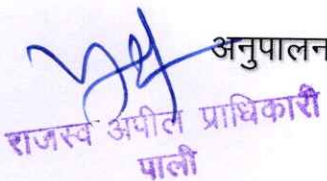 अनुपालन
राजस्व अपील प्राधिकारी
पाली